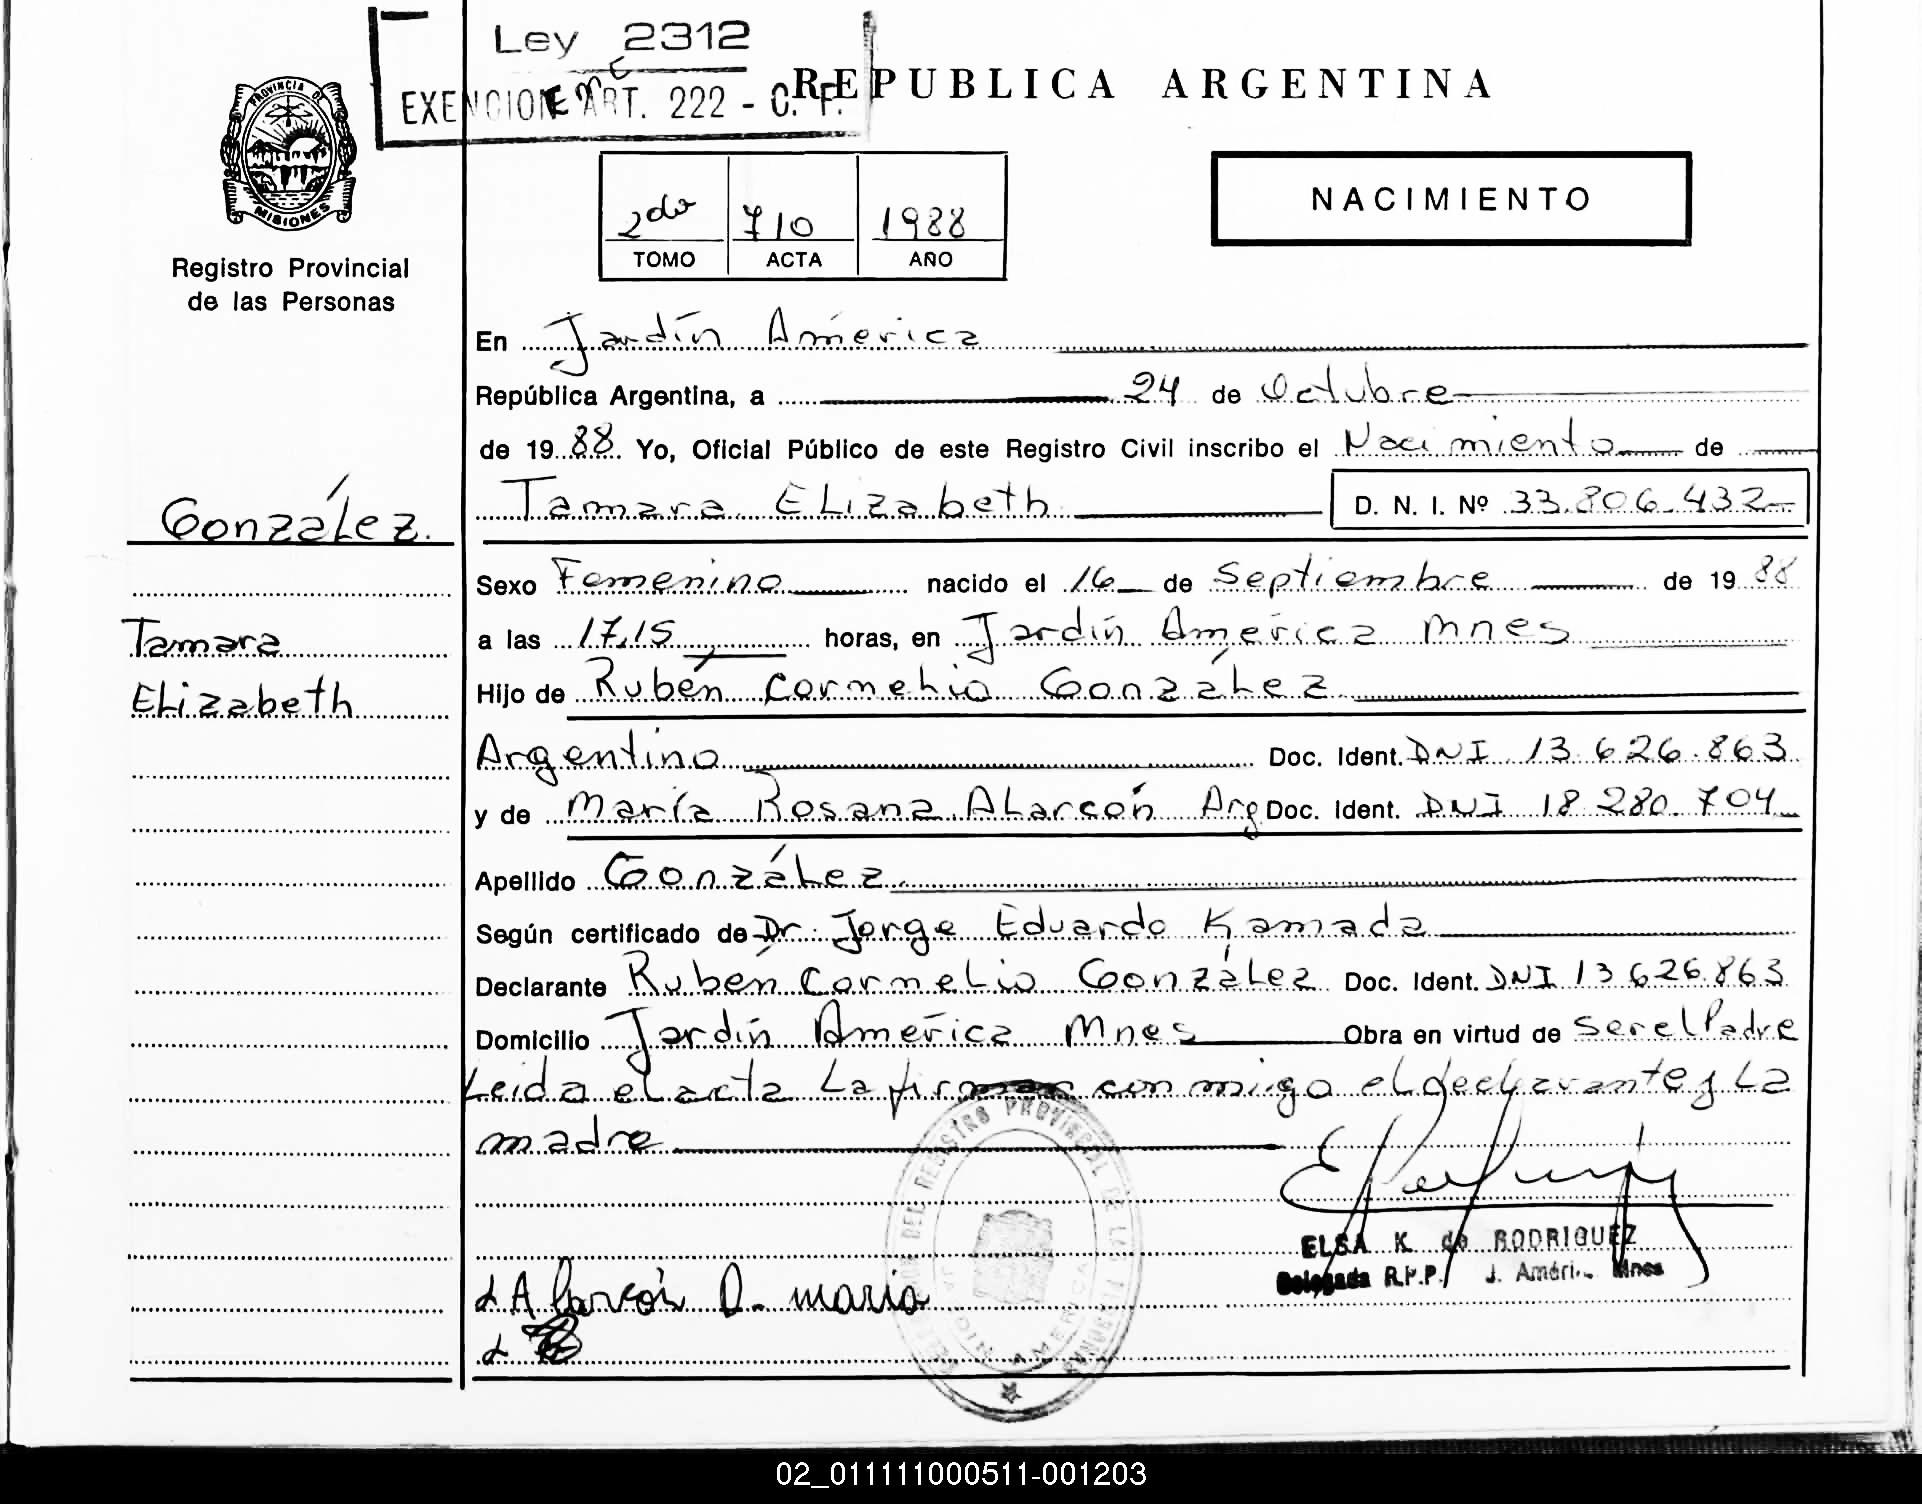 Ley 2312
EXENCION ART. 222 - C. F.
REPUBLICA ARGENTINA
PROVINCIA DE
MISIONES
Registro Provincial
de las Personas
2do 710 1988
TOMO ACTA AÑO
NACIMIENTO
En Jardín América
República Argentina, a 24 de Octubre
de 1988 Yo, Oficial Público de este Registro Civil inscribo el Nacimiento de
Tamara ELizabeth D. N. I. Nº 33.806.432
González.
Tamara
ELizabeth
Sexo Femenino nacido el 16 de Septiembre de 1988
a las 17,15 horas, en Jardín América Mnes
Hijo de Rubén Cornelio González
Argentino Doc. Ident. DNI 13.626.863
y de María Rosana ALarcón Arg Doc. Ident. DNI 18.280.704
Apellido González
Según certificado de Dr. Jorge Eduardo Kamada
Declarante Rubén Cornelio González Doc. Ident. DNI 13.626.863
Domicilio Jardín América Mnes Obra en virtud de ser el Padre
Leida el acta La firman conmigo el declarante y La
madre
REGISTRO PROVINCIAL DE LAS PERSONAS
JARDIN AMERICA
ELSA K. de RODRIGUEZ
Delegada R.P.P. J. Améri. Mnes
Alarcón R. maria
02_011111000511-001203